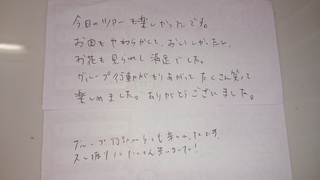 今日のツアーも楽しかったです。
お肉もやわらかくて、おいしかったし、
お花も見られて満足でした。
グループ行動がもりあがって たくさん笑って
楽しめました。ありがとうございました。
グループ行動がとても楽しかったです
久し振りにたくさん笑いました!